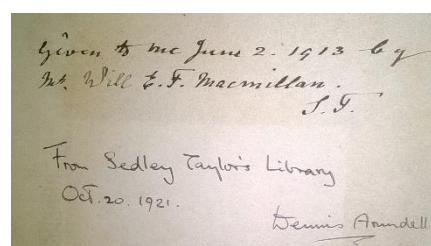 Given to me June 2. 1913 by
Mr. Will E. F. Macmillan.
S. T.
From Sedley Taylor's Library
Oct. 20. 1921.
Dennis Arundell